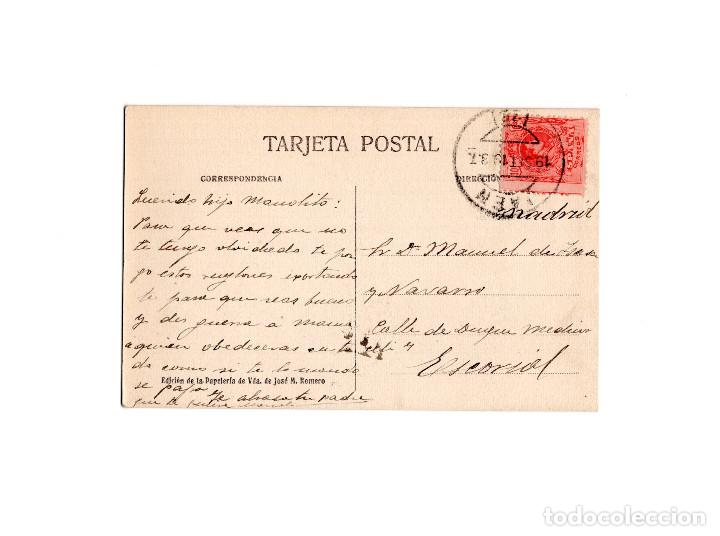 TARJETA POSTAL
CORRESPONDENCIA
DIRECCIÓN
JAEN
19 SET 13 3.T
CORREOS
Querido hijo Manolito:
Para que veas que no
te tengo olvidado te pon
go estos renglones exortando
te para que seas bueno
y des guerra á Mama
a quien obedeceras en to
do como si te lo mandase
tu papa
Te abraza tu padre
que te quiere
Edición de la Papelería de Vda. de José M. Romero
Madrid
Sr Dn Manuel de
y Navarro
Calle de Duque Medina
celi 4
Escorial
todocoleccion.net